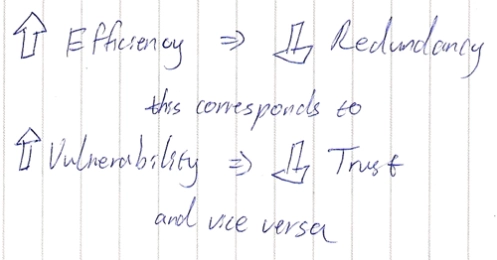 ⇧ Efficiency ⇒ ⇩ Redundancy
this corresponds to
⇧ Vulnerability ⇒ ⇩ Trust
and vice versa